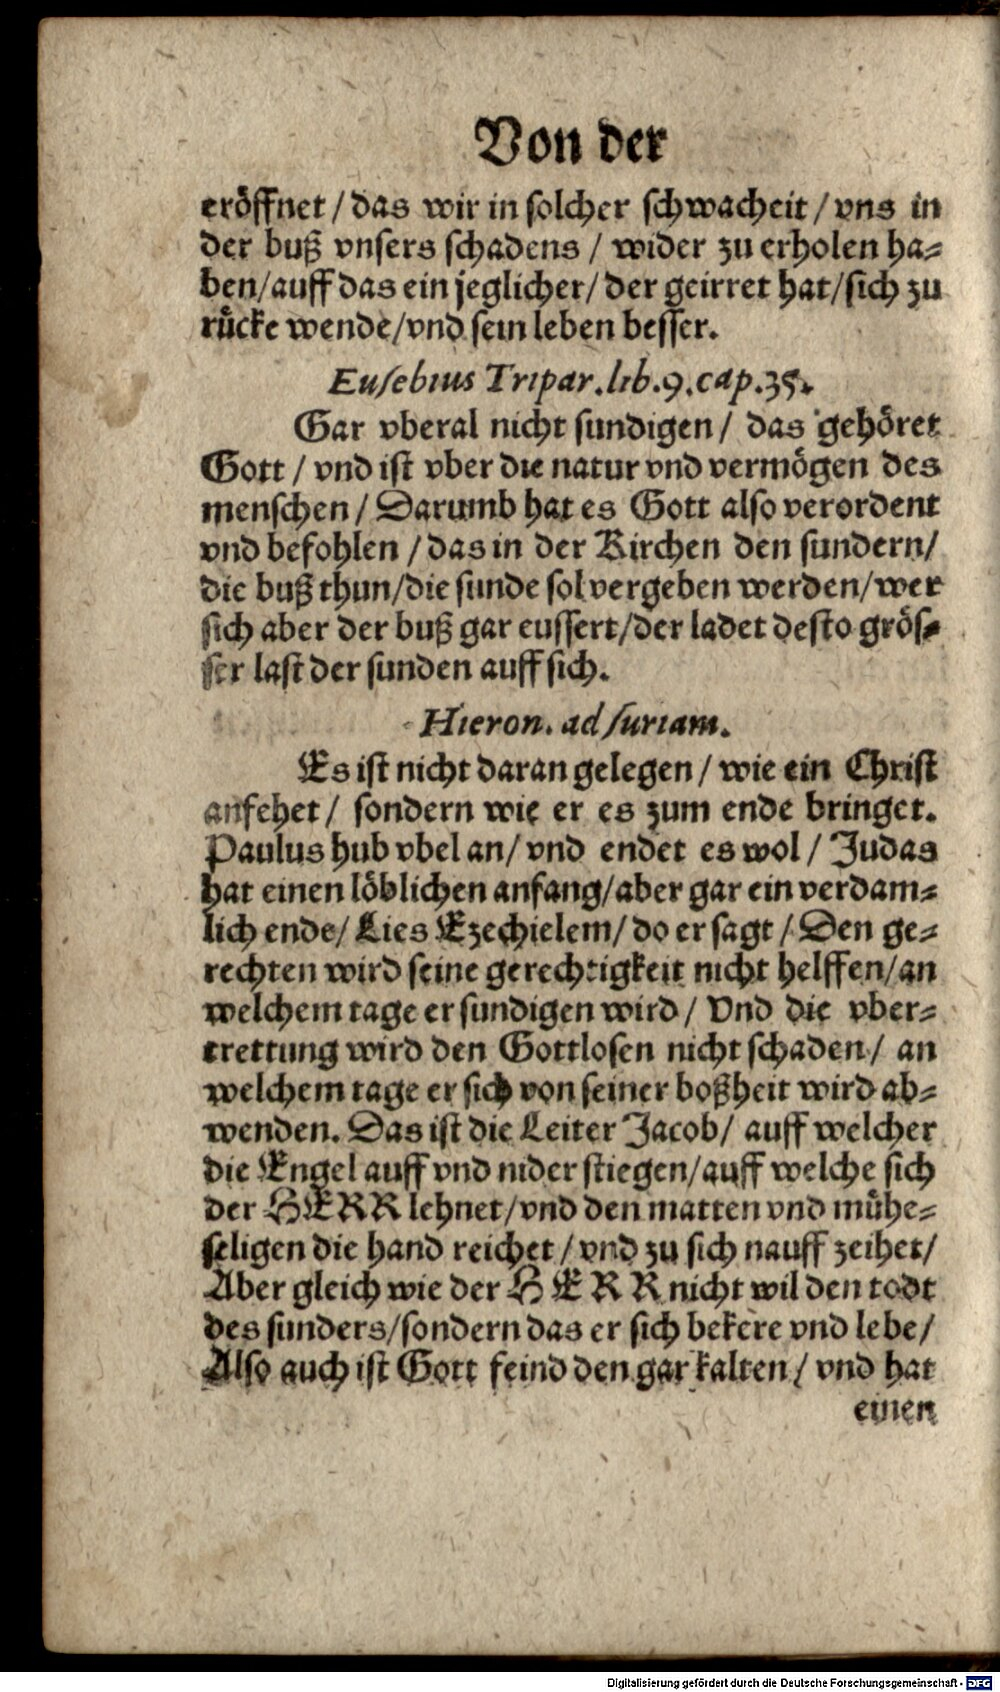 Von der
eröffnet / das wir in solcher schwacheit / vns in
der buß vnsers schadens / wider zu erholen ha-
ben/auff das ein jeglicher/ der geirret hat/sich zu
rücke wende/vnd sein leben besser.
Eusebius Tripar.lib.9.cap.35.
Gar vberal nicht sundigen / das gehöret
Gott / vnd ist vber die natur vnd vermögen des
menschen / Darumb hat es Gott also verordent
vnd befohlen / das in der Kirchen den sundern/
die buß thun/die sunde sol vergeben werden/wer
sich aber der buß gar eussert/der ladet desto grös-
ser last der sunden auff sich.
Hieron. ad suriam.
Es ist nicht daran gelegen / wie ein Christ
anfehet / sondern wie er es zum ende bringet.
Paulus hub vbel an/ vnd endet es wol / Judas
hat einen löblichen anfang/aber gar ein verdam-
lich ende/ Lies Ezechielem/ do er sagt / Den ge-
rechten wird seine gerechtigkeit nicht helffen/an
welchem tage er sundigen wird / Vnd die vber-
trettung wird den Gottlosen nicht schaden / an
welchem tage er sich von seiner boßheit wird ab-
wenden. Das ist die Leiter Jacob/ auff welcher
die Engel auff vnd nider stiegen/auff welche sich
der HERR lehnet/vnd den matten vnd mühe-
seligen die hand reichet / vnd zu sich nauff zeihet/
Aber gleich wie der HERR nicht wil den todt
des sunders/sondern das er sich bekere vnd lebe/
Also auch ist Gott feind den gar kalten / vnd hat
einen
Digitalisierung gefördert durch die Deutsche Forschungsgemeinschaft - DFG